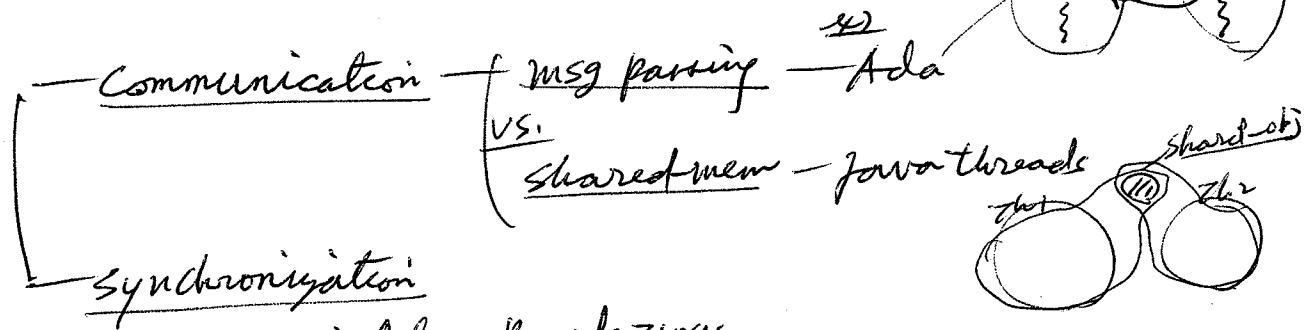 ex)
— Communication — msg passing — Ada
vs.
shared-mem — Java threads
shared-obj
Th1
Th2
— Synchronization